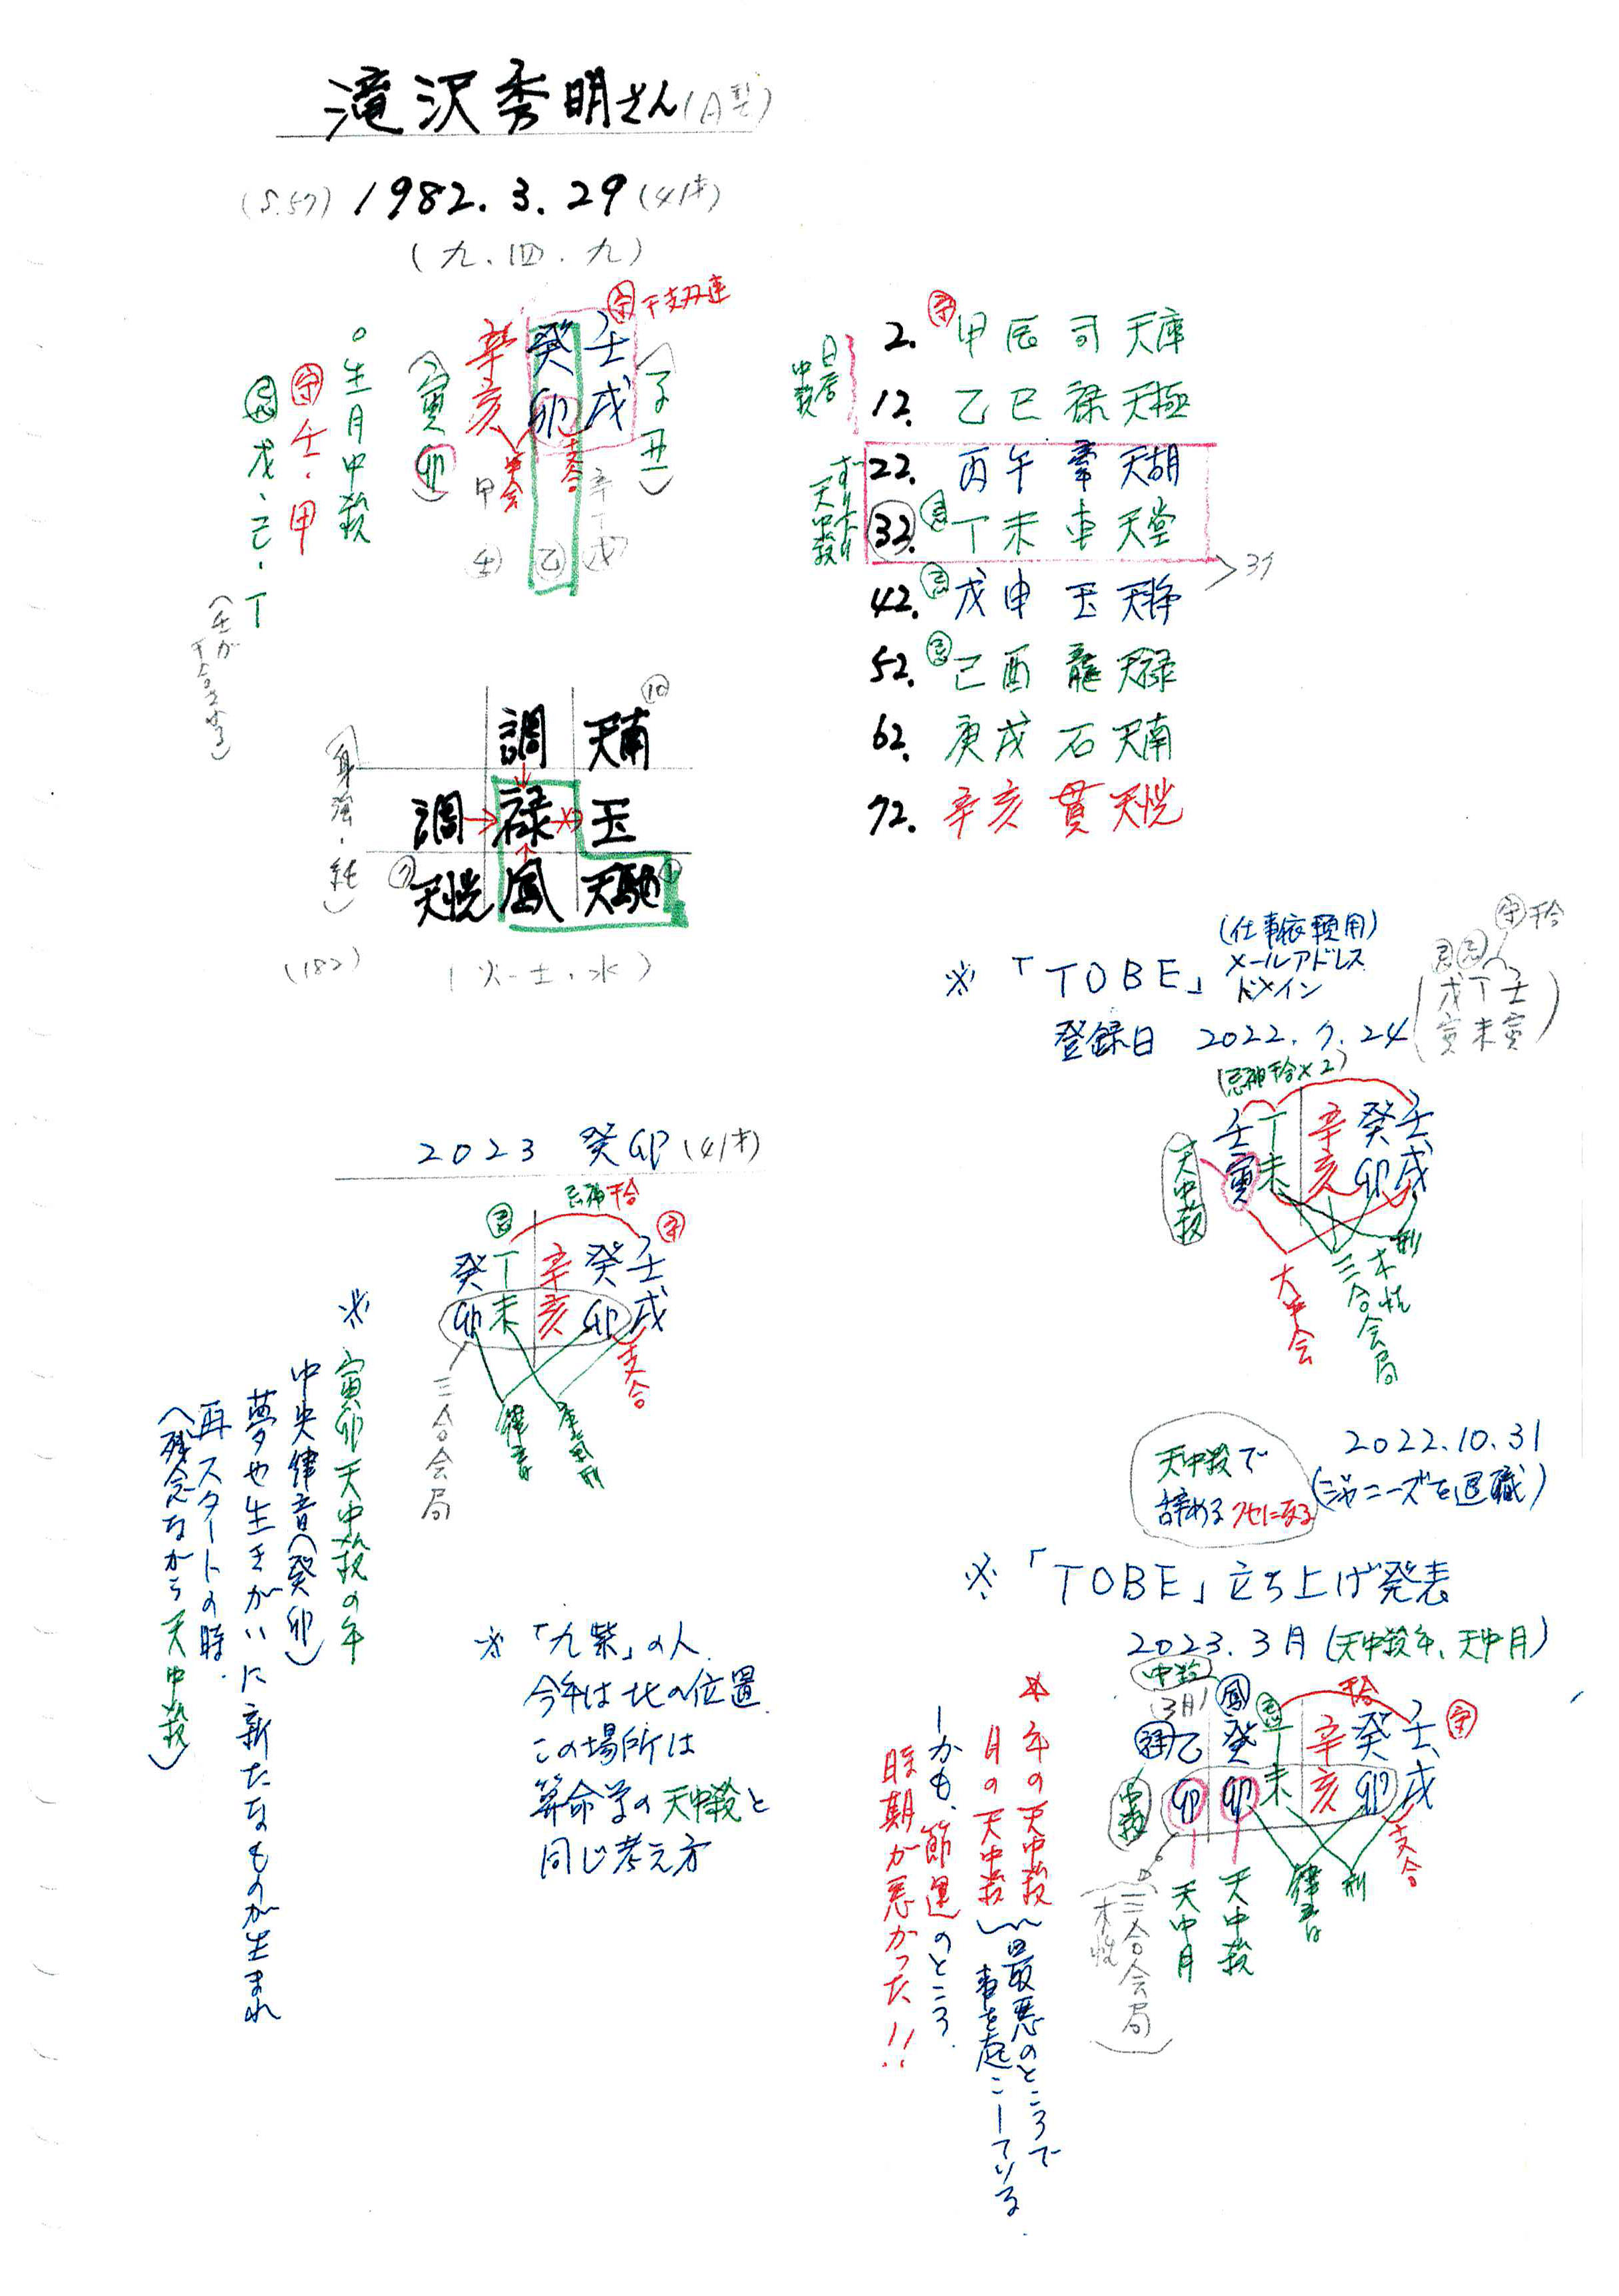 滝沢秀明さん(A型)
(S.57) 1982.3.29 (41才)
(九.四.九)
守 干支双連
辛 癸 壬
亥 卯 戌
(寅卯)
(子丑)
支合
半会
甲
辛丁戊
壬 乙
○生月中殺
守 壬・甲
忌 戊・己・丁
(壬が干合される)
調 天南 10
調 禄 玉
天恍 鳳 天馳
(身強・純)
(182)
(火-土.水)
日居中殺
2. 守 甲辰 司 天庫
12. 乙巳 禄 天極
22. 丙午 牽 天胡
32. 忌 丁未 車 天堂
42. 忌 戊申 玉 天将
52. 忌 己酉 龍 天禄
62. 庚戌 石 天南
72. 辛亥 貫 天恍
天中殺
37
※「TOBE」(仕事依頼用)
メールアドレス
ドメイン
登録日 2022.7.24
守 干合
忌 忌
(戊丁壬
寅未寅)
(忌神干合×2)
壬丁 辛癸壬
寅未 亥卯戌
天中殺
大半会
三合会局
木性
刑
2023 癸卯 (41才)
忌神干合
忌 守
癸丁 辛癸壬
卯未 亥卯戌
支合
三合会局
律音
刑
※ 寅卯天中殺の年
中央律音(癸卯)
夢や生きがいに新たなものが生まれ
再スタートの時.
(残念ながら天中殺)
※「九紫」の人
今年は北の位置
この場所は
算命学の天中殺と
同じ考え方
2022.10.31
(ジャニーズを退職)
天中殺で
辞める クセになる
※「TOBE」立ち上げ発表
2023.3月(天中殺年、天中月)
中殺
(3月) 鳳 忌 干合 守
禄 乙 癸 丁 辛 癸 壬
中殺 卯 卯 未 亥 卯 戌
支合
刑
律音
天中殺
天中月
(三合会局
木性)
※ 年の天中殺
月の天中殺
最悪のところで
事を起こしている.
しかも、節運のところ.
時期が悪かった!!